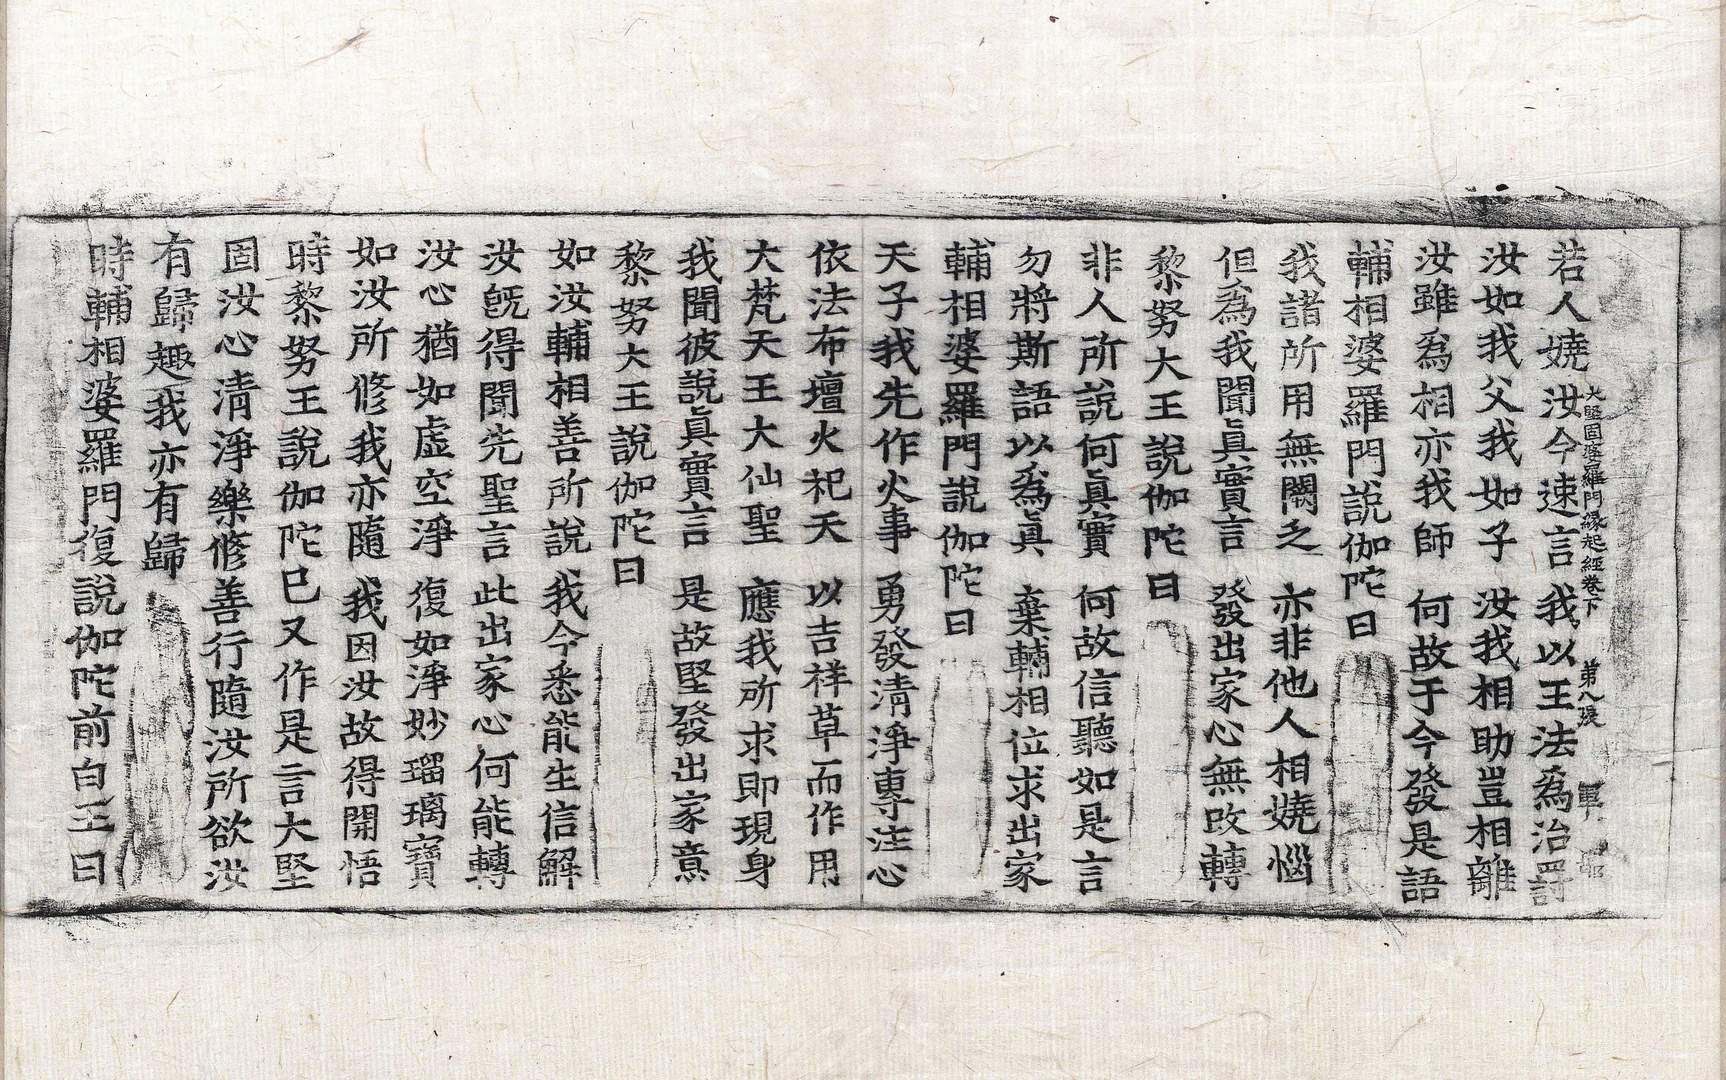 大堅固婆羅門緣起經卷下 第八張 軍
若人嬈汝今速言 我以王法爲治罰
汝如我父我如子 汝我相助豈相離
汝雖爲相亦我師 何故于今發是語
輔相婆羅門說伽陀曰
我諸所用無闕乏 亦非他人相嬈惱
但爲我聞眞實言 發出家心無改轉
黎努大王說伽陀曰
非人所說何眞實 何故信聽如是言
勿將斯語以爲眞 棄輔相位求出家
輔相婆羅門說伽陀曰
天子我先作火事 勇發清淨專注心
依法布壇火祀天 以吉祥草而作用
大梵天王大仙聖 應我所求即現身
我聞彼說眞實言 是故堅發出家意
黎努大王說伽陀曰
如汝輔相善所說 我今悉能生信解
汝旣得聞先聖言 此出家心何能轉
汝心猶如虛空淨 復如淨妙瑠璃寶
如汝所修我亦隨 我因汝故得開悟
時黎努王說伽陀已又作是言大堅
固汝心清淨樂修善行隨汝所欲汝
有歸趣我亦有歸
時輔相婆羅門復說伽陀前白王曰